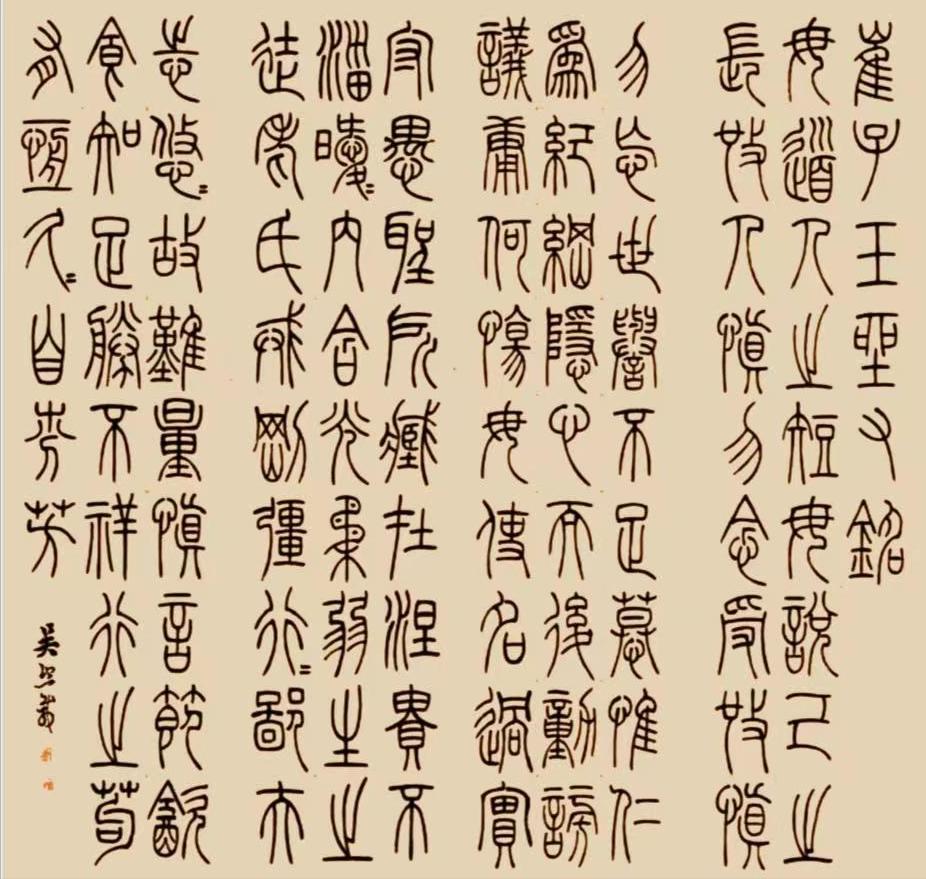 崔子玉坐又銘
毋道人之短毋說己之
長施人慎勿念受施慎
勿忘世譽不足慕惟仁
爲紀綱隱心而後動謗
議庸何慯毋使名過實
守愚聖所臧在涅貴不
淄曖〻內含光柔弱生之
徒老氏戒剛彊行〻鄙夫
志悠〻故難量慎言節飲
食知足勝不祥行之苟
有恆久〻自芬芳
吳熙載